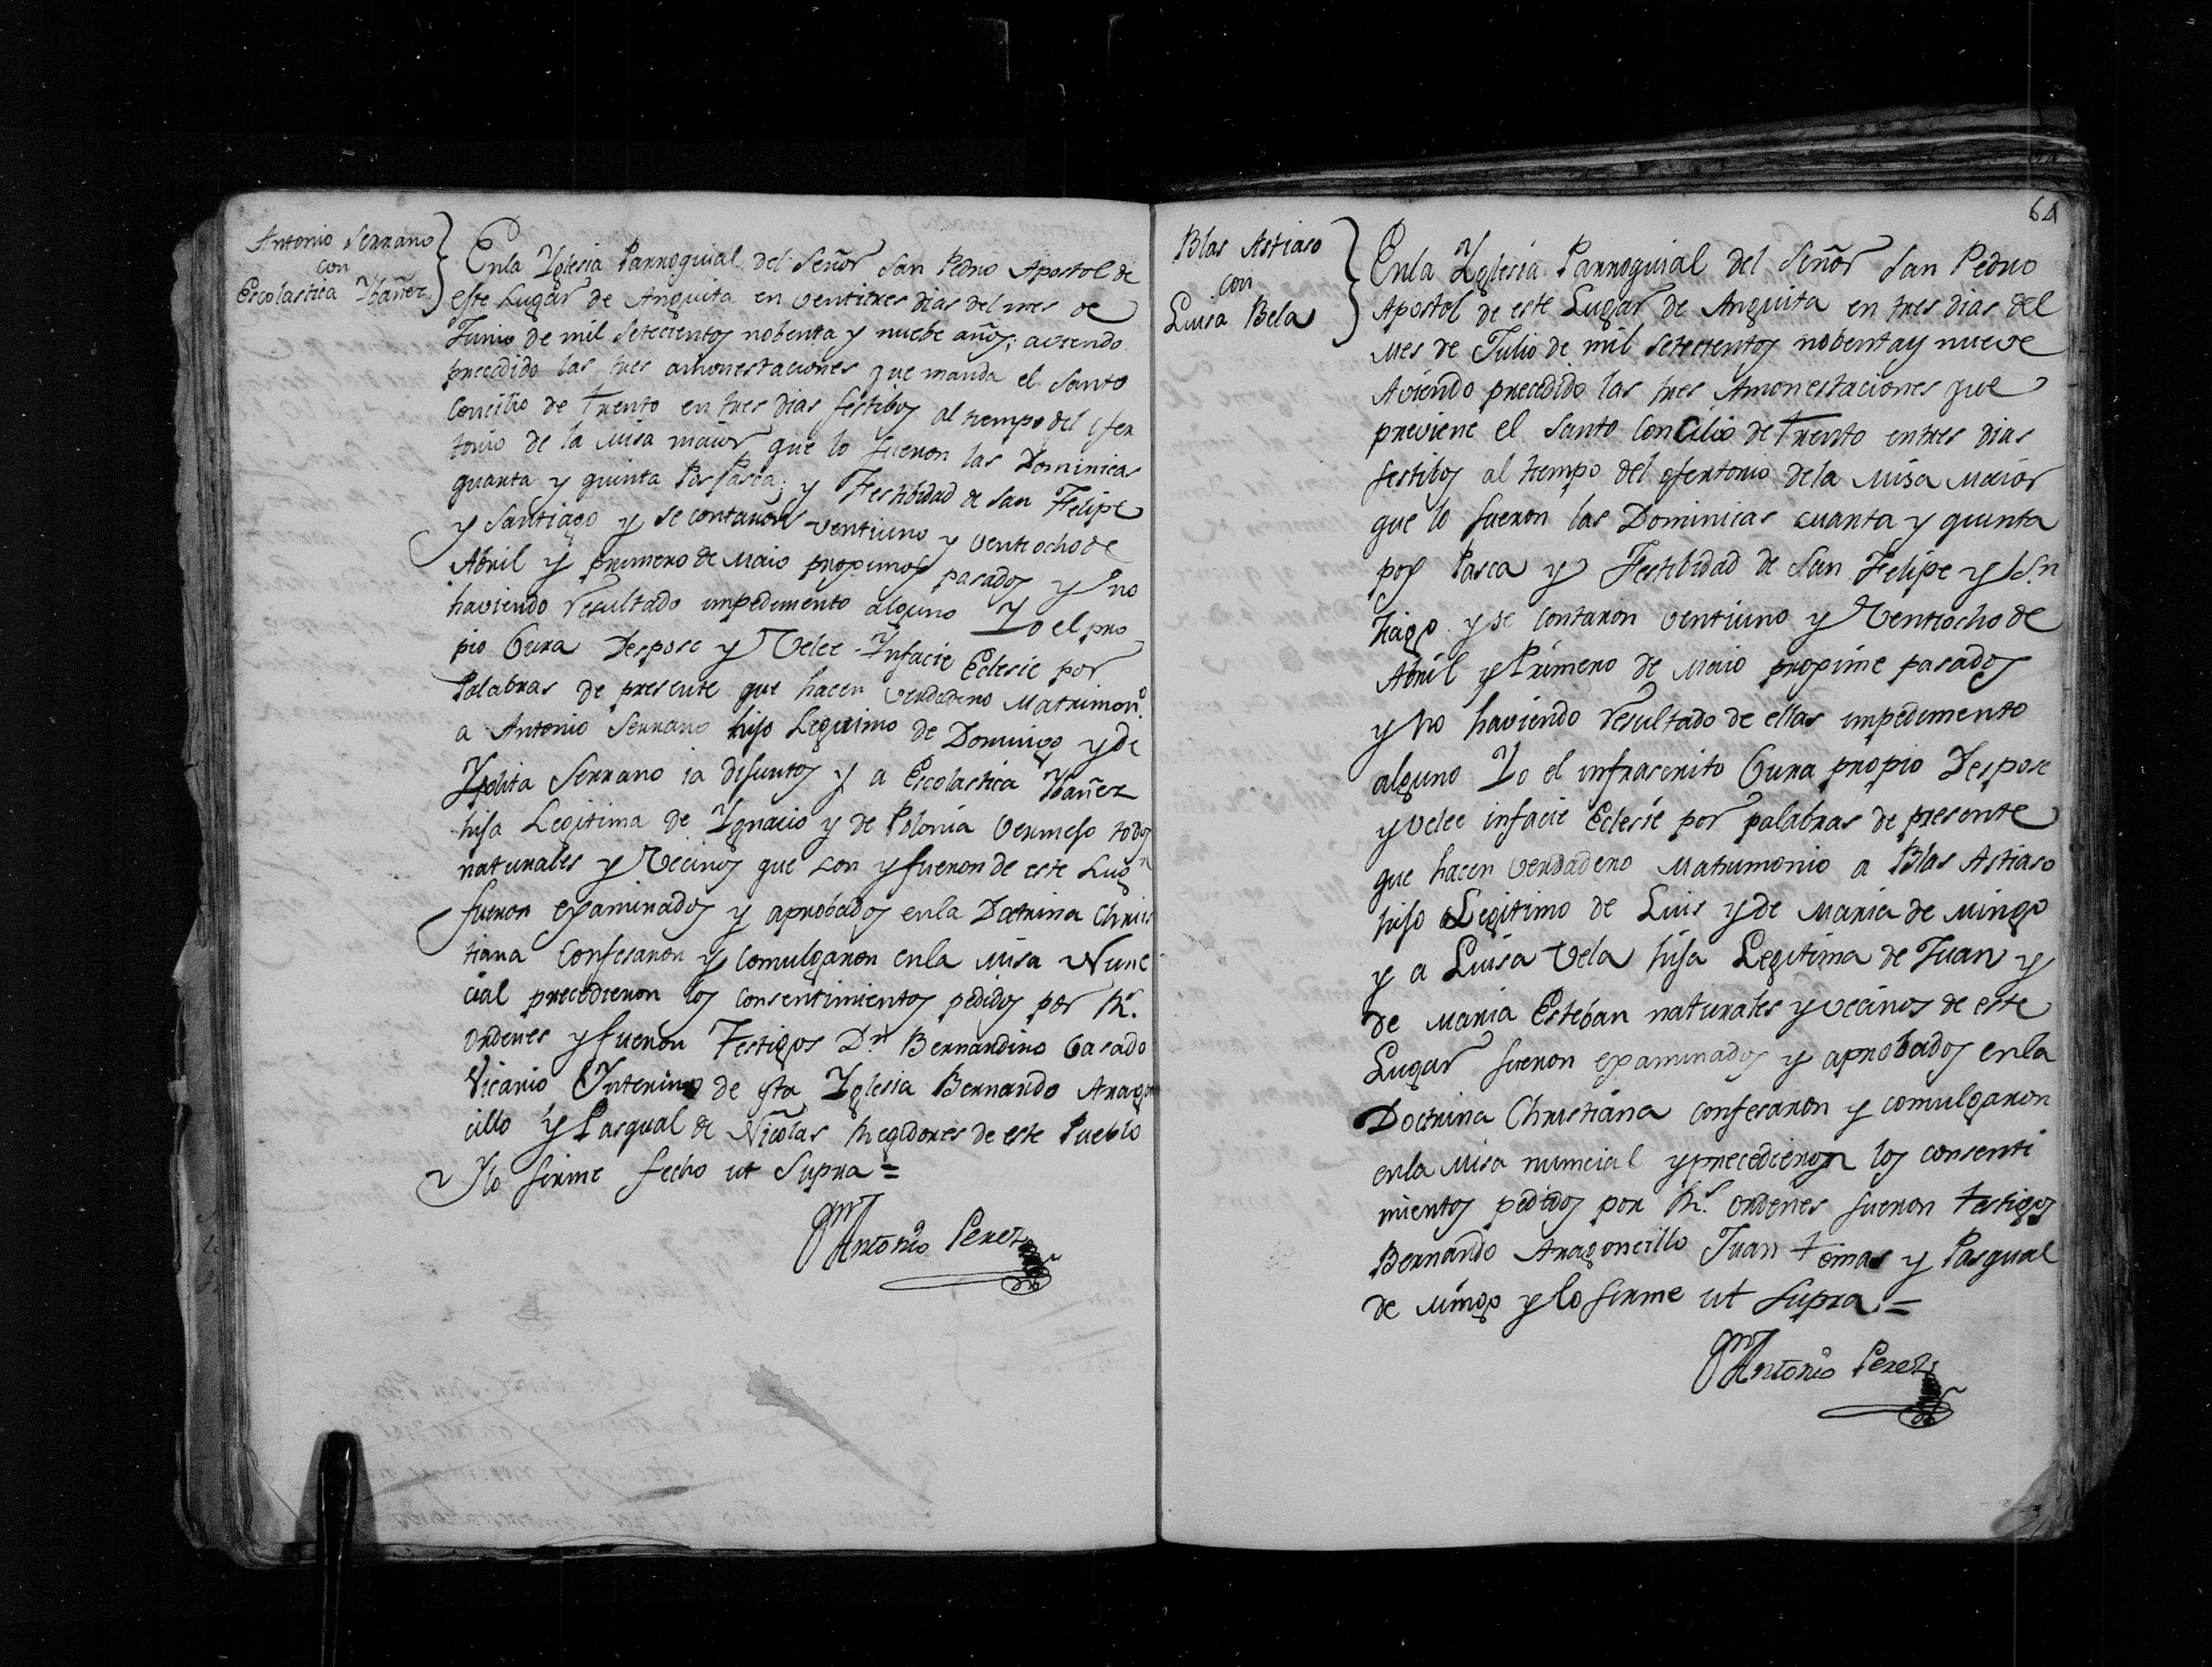 Antonio Serrano
con
Escolastica Ybañez
Enla Yglesia Parroquial del Señor San Pedro Apostol de
este Lugar de Anguita en ventitres dias del mes de
Junio de mil setecientos nobenta y nuebe años; aviendo
precedido las tres amonestaciones que manda el Santo
Concilio de Trento en tres dias festibos al tiempo del ofer
torio de la Misa maior que lo fueron las Dominicas
quarta y quinta Pos Pasca; y Festibidad de San Felipe
y Santiago y se contaron ventiuno y ventiocho de
Abril y primero de Maio proximos pasados y no
haviendo resultado impedimento alguno Yo el pro
pio Cura Despose y Velee Infacie Eclesie por
Palabras de presente que hacen verdadero Matrimonº
a Antonio Serrano hijo Legitimo de Domingo y de
Ypolita Serrano ia difuntos y a Escolastica Ybañez
hija Legitima de Ygnacio y de Polonia Vermejo todos
naturales y Vecinos que son y fueron de este Lugr
fueron examinados y aprobados enla Dotrina Chris
tiana Confesaron y Comulgaron enla Misa Nunc
cial precedieron los consentimientos pedidos por Rs.
ordenes y fueron Testigos Dn Bernardino Casado
Vicario Interino de esta Yglesia Bernardo Aragon
cillo y Pasqual de Nicolas Regidores de este Pueblo
Y lo firme fecho ut Supra =
Antonio Perez
64
Blas Astiaso
con
Luisa Bela
Enla Yglesia Parroquial del Señor San Pedro
Apostol de este Lugar de Anguita en tres dias del
Mes de Julio de mil setecientos nobenta y nueve
Aviendo precedido las tres Amonestaciones que
previene el Santo Concilio de Trento entres dias
festibos al tiempo del ofertorio dela Misa Maior
que lo fueron las Dominicas cuarta y quinta
pos Pasca y Festibidad de San Felipe y Sn
tiago y se contaron ventiuno y Ventiocho de
Abril y Primero de Maio proxime pasados
y No haviendo resultado de ellas impedimento
alguno Yo el infrascrito Cura propio Despose
y velee infacie Eclesie por palabras de presente
que hacen verdadero Matrimonio a Blas Astiaso
hijo Legitimo de Luis y de Maria de Mingo
y a Luisa Vela hija Legitima de Juan y
de Maria Esteban naturales y vecinos de este
Lugar fueron examinados y aprobados enla
Doctrina Christiana confesaron y comulgaron
enla Misa nuncial y precedieron los consenti
mientos pedidos por Rs. ordenes fueron testigos
Bernardo Aragoncillo Juan tomas y Pasqual
de Mingo y lo firme ut supra =
Antonio Perez